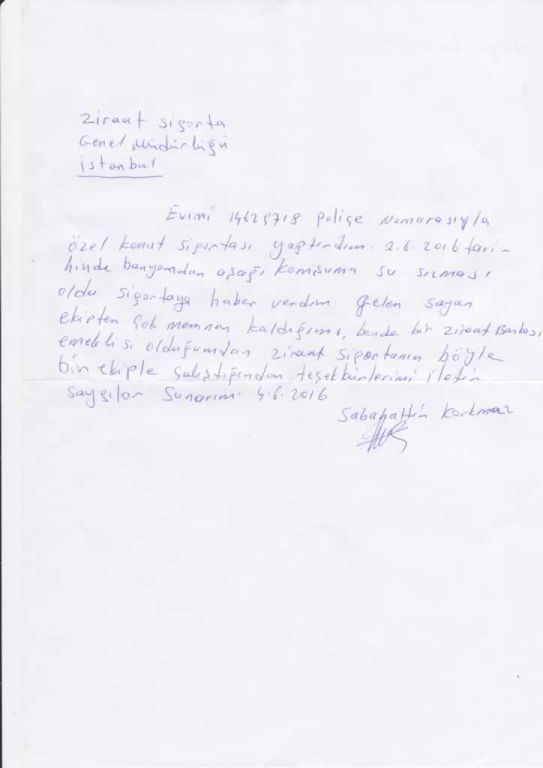 Ziraat Sigorta
Genel Müdürlüğü
İstanbul
Evimi 14629718 poliçe Numarasıyla
özel konut sigortası yaptırdım. 2.6.2016 tari-
hinde banyomdan aşağı komşuma su sızması
oldu sigortaya haber verdim gelen sayan
ekipten çok memnun kaldığımı, bende bir Ziraat Bankası
emeklisi olduğumdan Ziraat sigortanın böyle
bir ekiple çalıştığından teşekkürlerimi iletir
saygılar Sunarım. 4.6.2016
Sabahattin Korkmaz